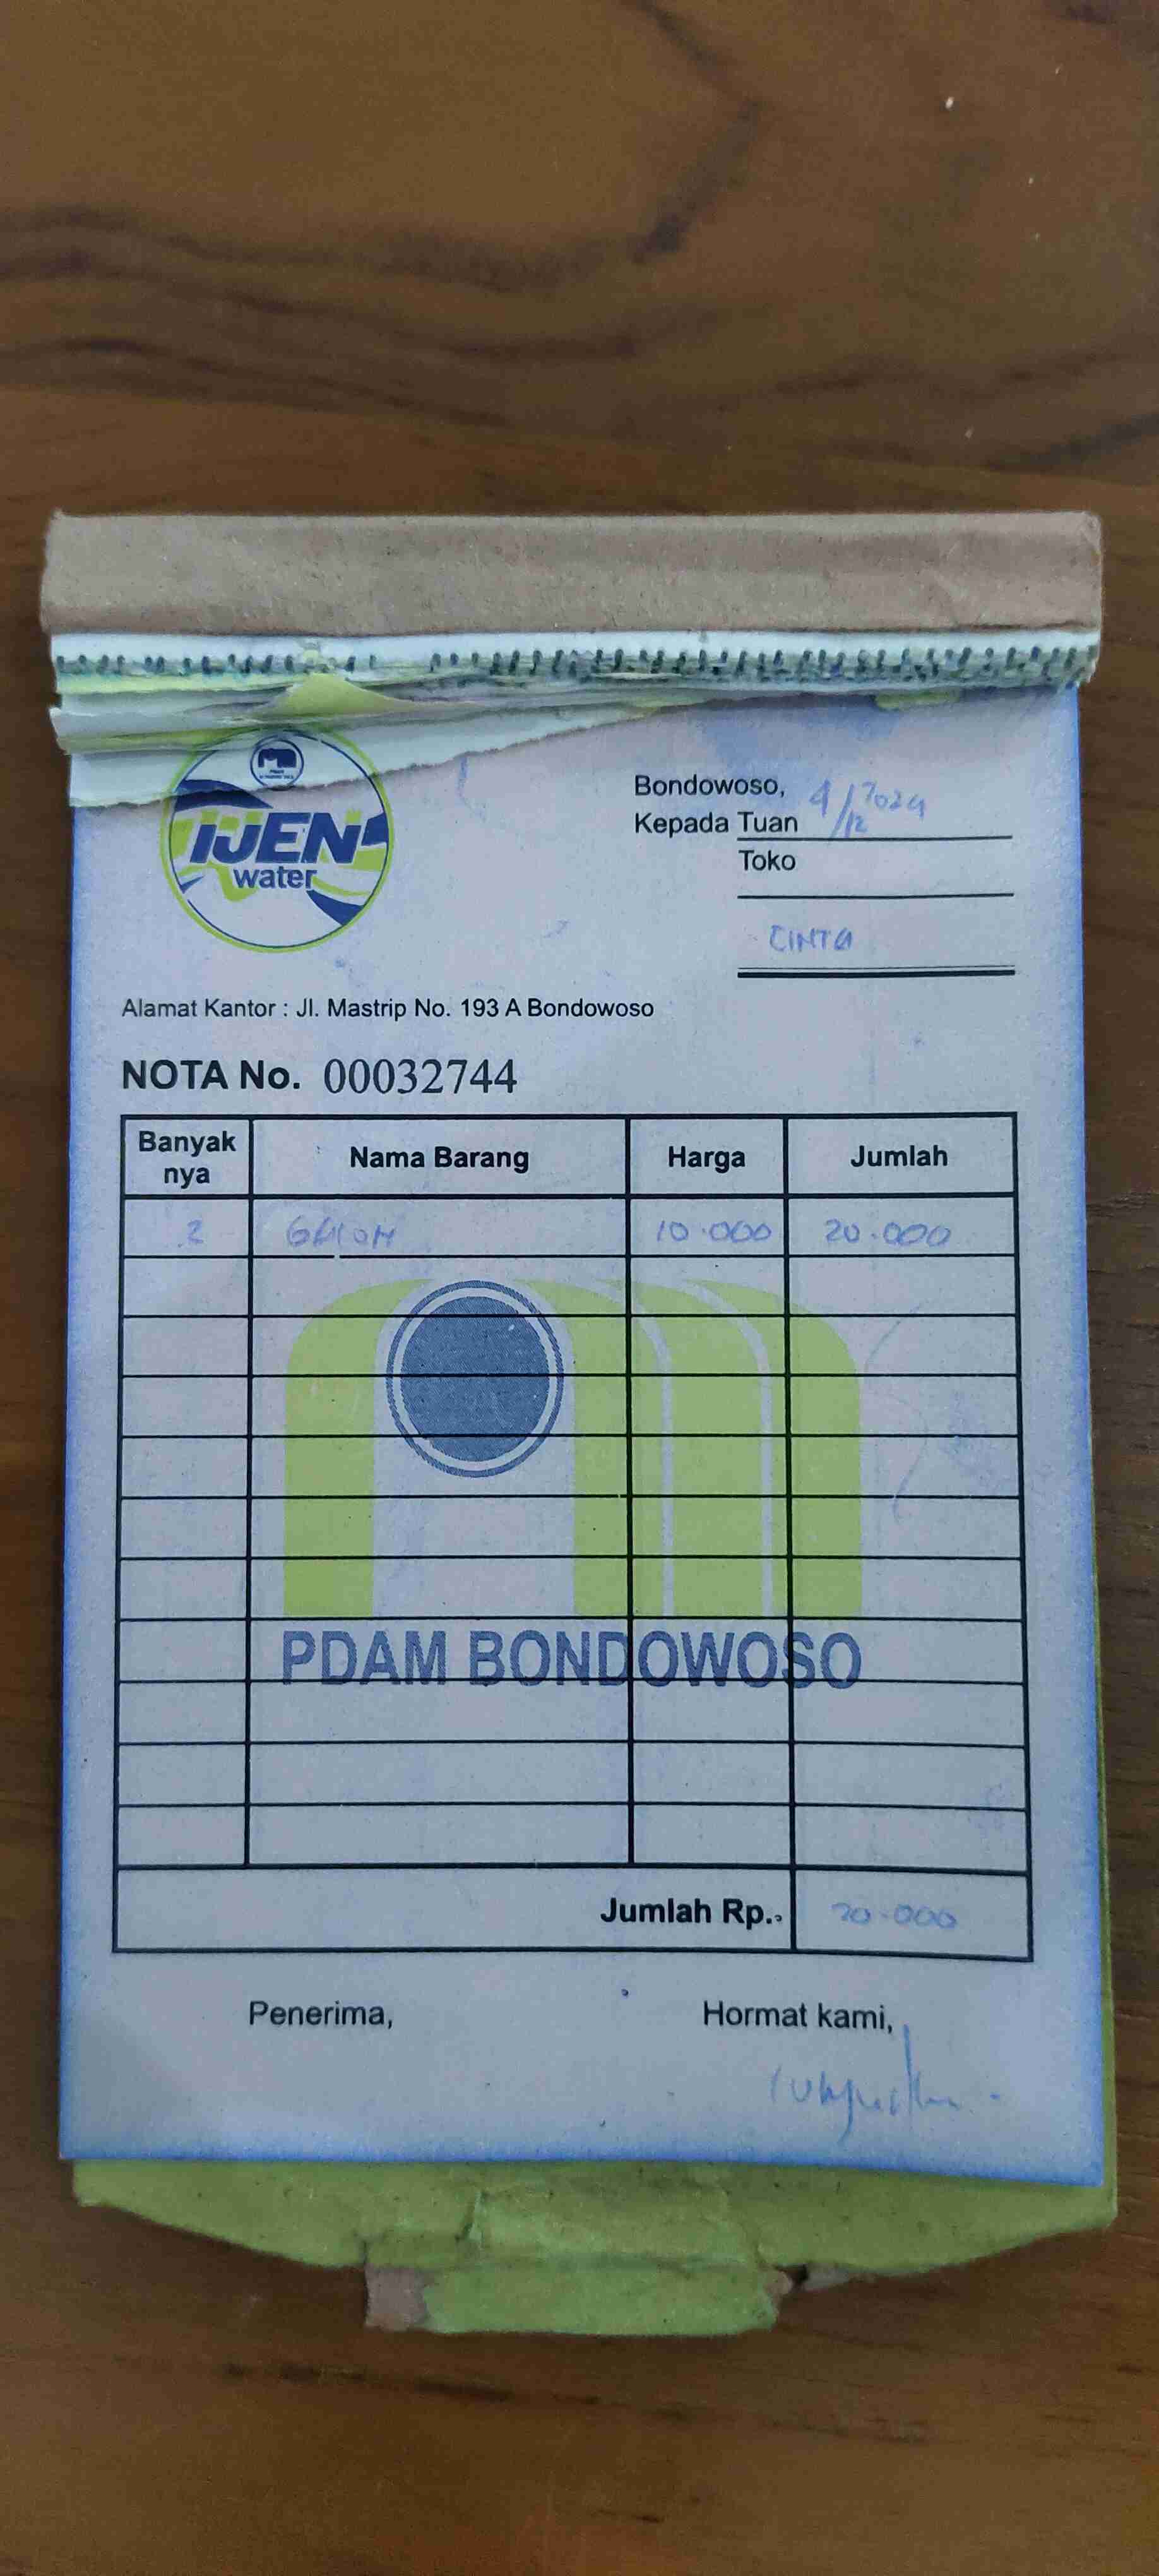 IJEN
water
Bondowoso, 4/12 2024
Kepada Tuan
Toko
CINTA
Alamat Kantor : Jl. Mastrip No. 193 A Bondowoso
NOTA No. 00032744
Banyak nya Nama Barang Harga Jumlah
2 GALON 10.000 20.000
PDAM BONDOWOSO
Jumlah Rp. 20.000
Penerima, Hormat kami,